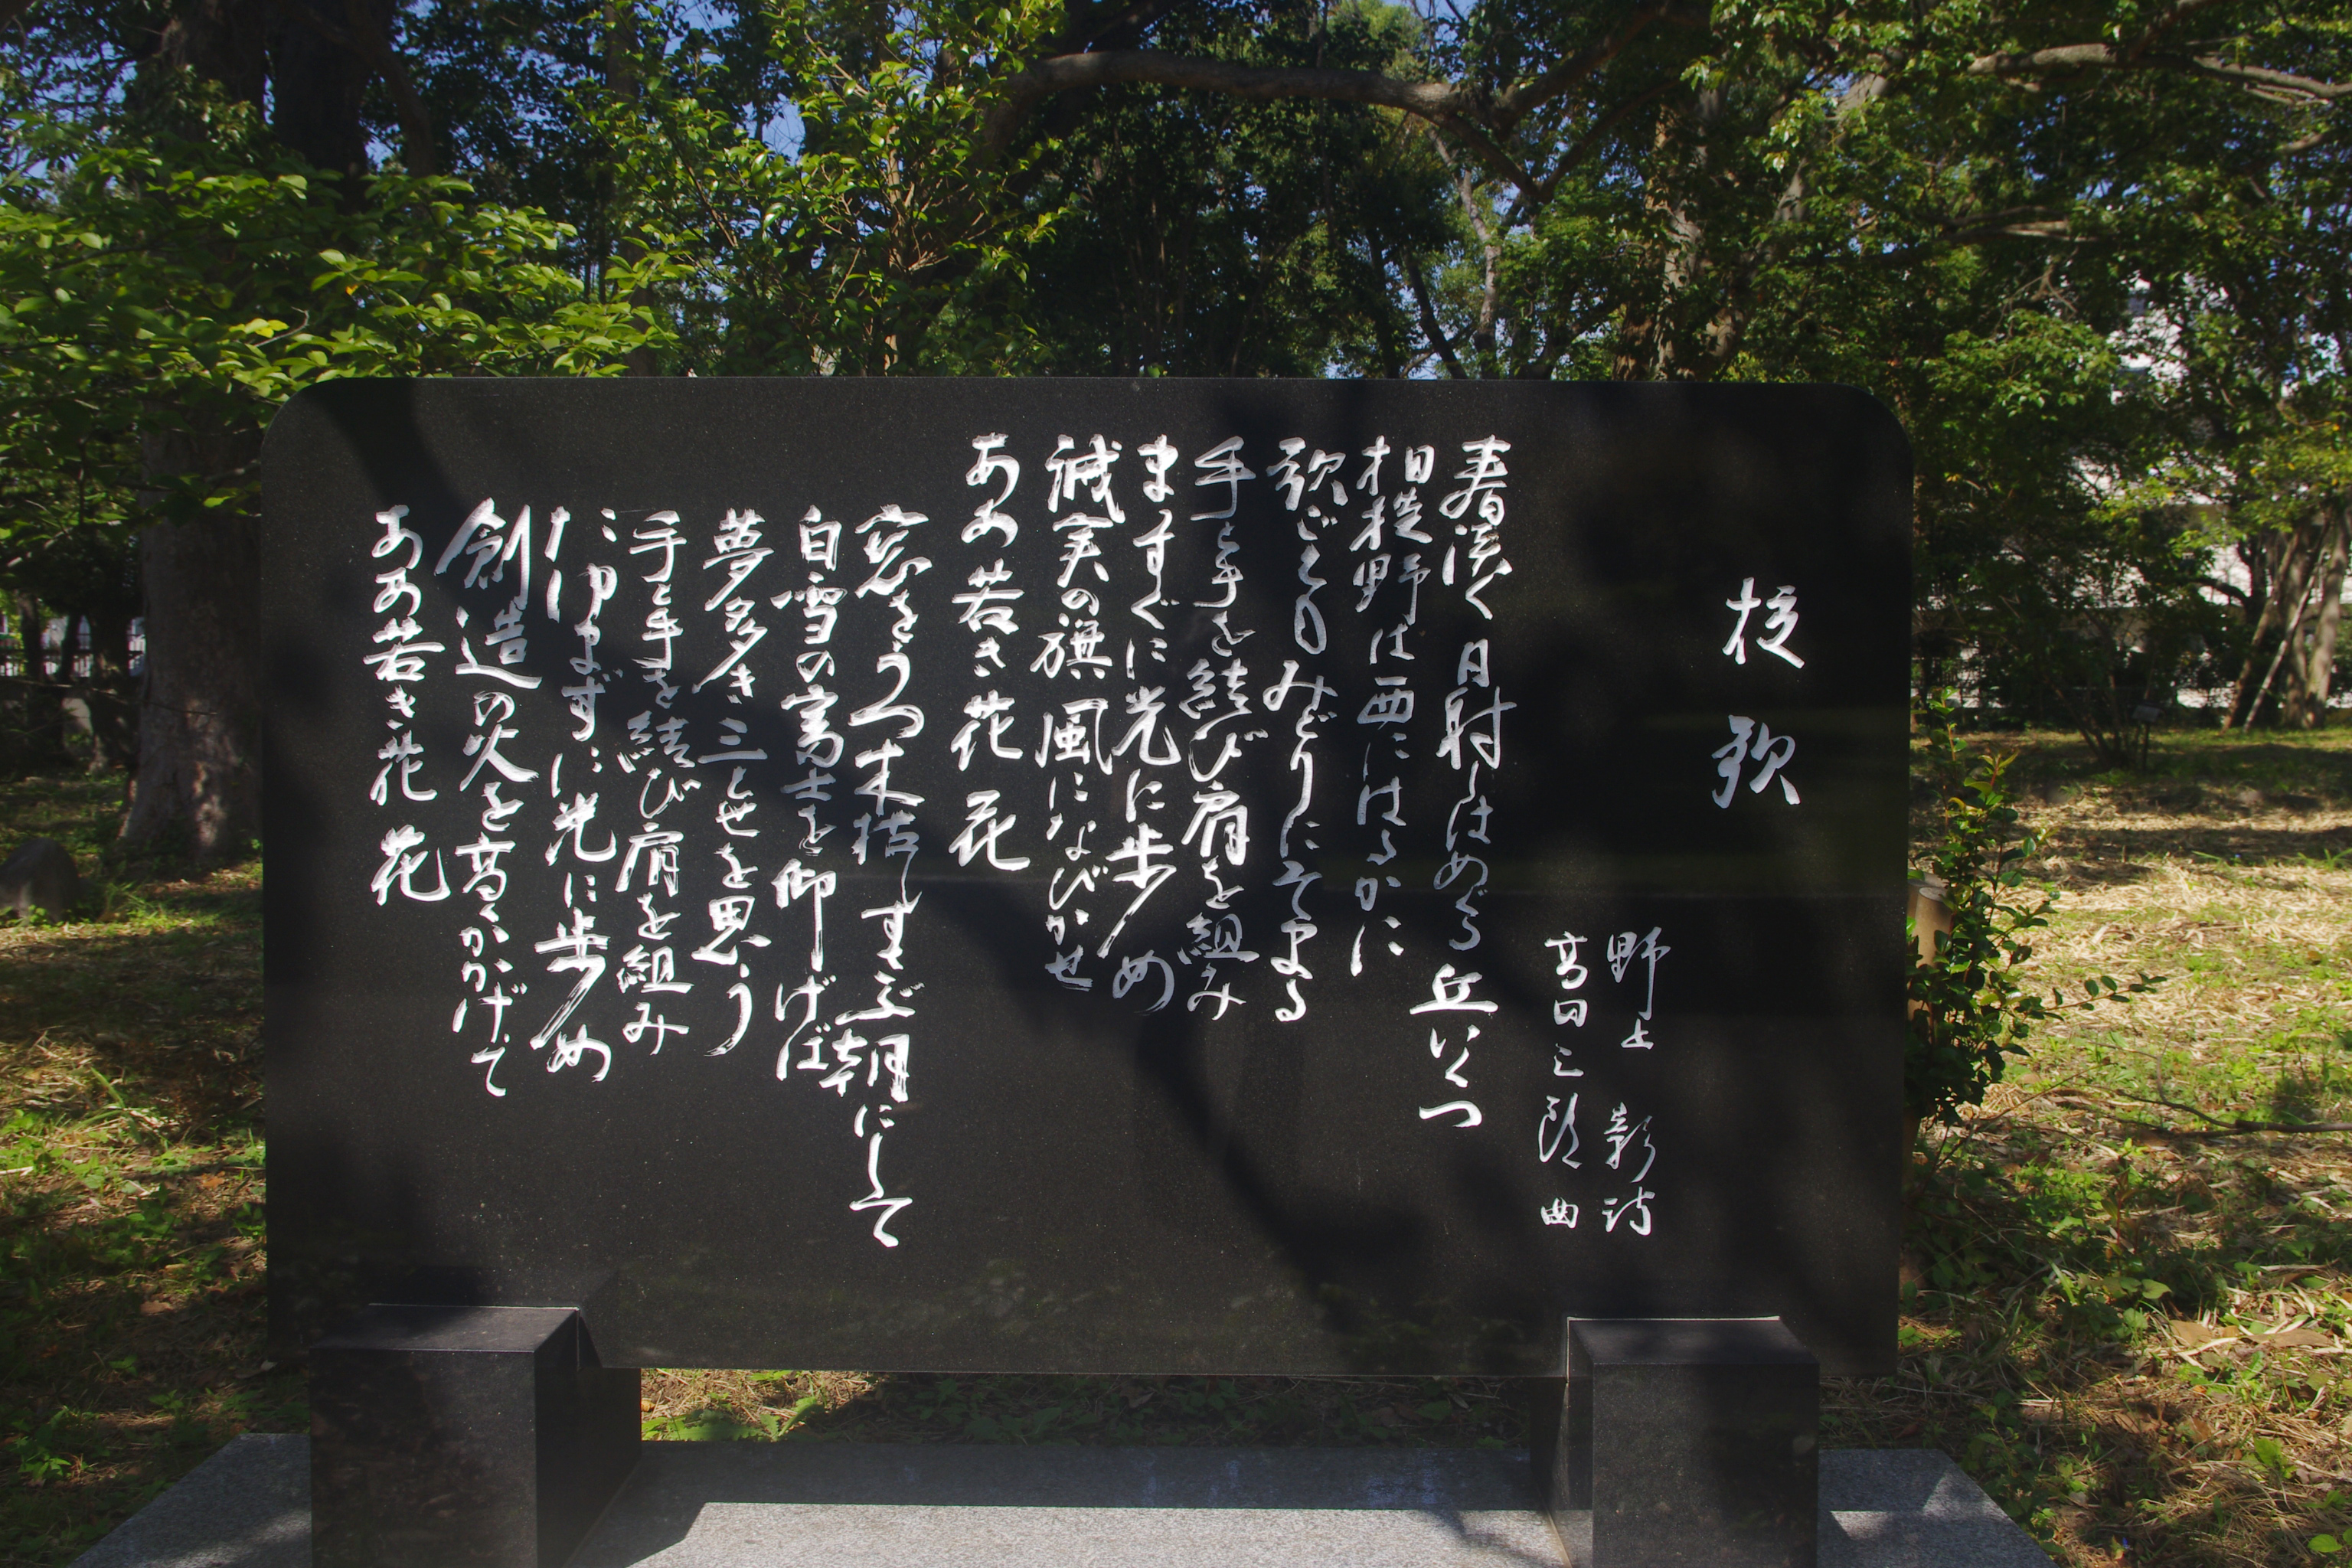 校歌
野上 彰 詩
高田三郎 曲
春浅く日射しはめぐる丘いくつ
相模野は西にはるかに
歌ごえもみどりにそまる
手と手を結び肩を組み
まっすぐに光に歩め
誠実の旗風になびかせ
ああ若き花 花
窓をうつ木枯しすさぶ朝にして
白雪の富士を仰げば
夢多き三とせを思う
手と手を結び肩を組み
たゆまずに光に歩め
創造の火を高くかかげて
ああ若き花 花